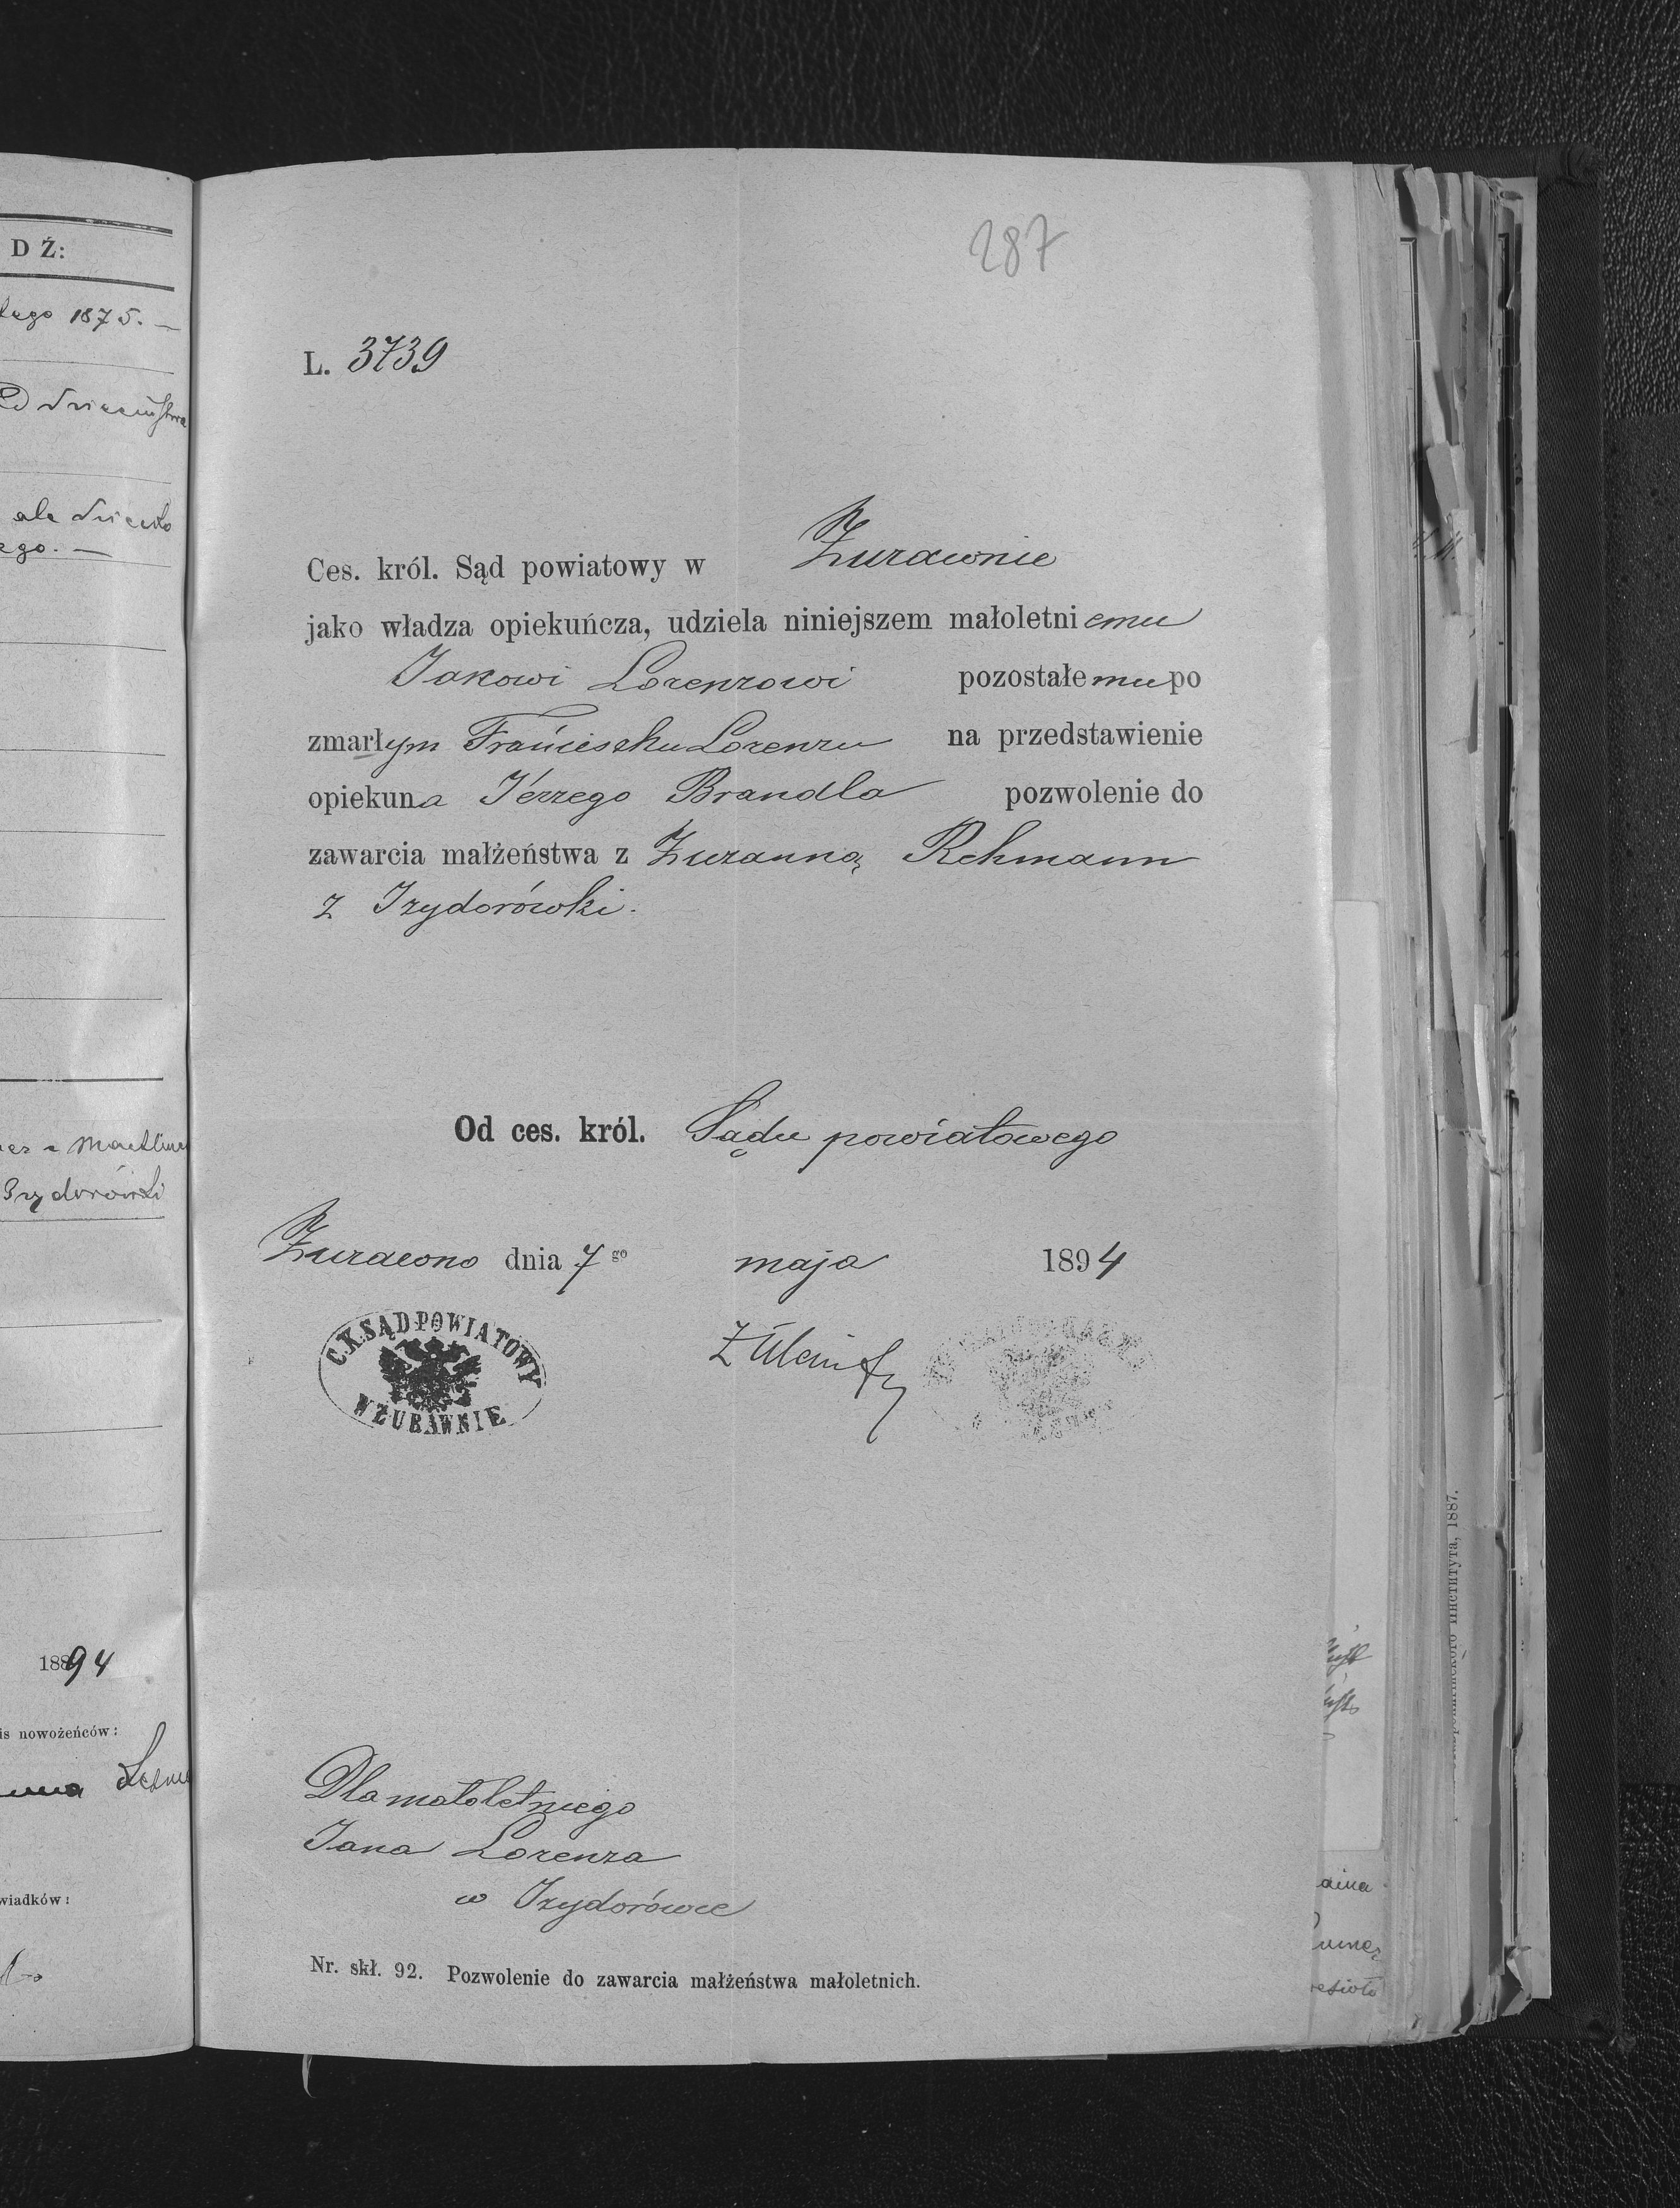 DŹ:
1875. —
ale
ego. —
1894
is nowożeńców:
wiadków:
287
L. 3739
Ces. król. Sąd powiatowy w Żurawnie
jako władza opiekuńcza, udziela niniejszem małoletniemu
Janowi Lorenzowi pozostałemu po
zmarłym Franciszku Lorenzu na przedstawienie
opiekuna Jerzego Brandla pozwolenie do
zawarcia małżeństwa z Zuzanną Rehmann
z Izydorówki.
Od ces. król. Sądu powiatowego
Żurawno dnia 7go maja 1894
C.K.SĄD POWIATOWY
W ŻURAWNIE
Dla małoletniego
Jana Lorenza
w Izydorówce
Nr. skł. 92. Pozwolenie do zawarcia małżeństwa małoletnich.
Института, 1887.